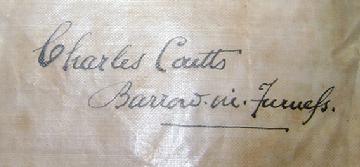 Charles Coutts
Barrow.in.Furness.